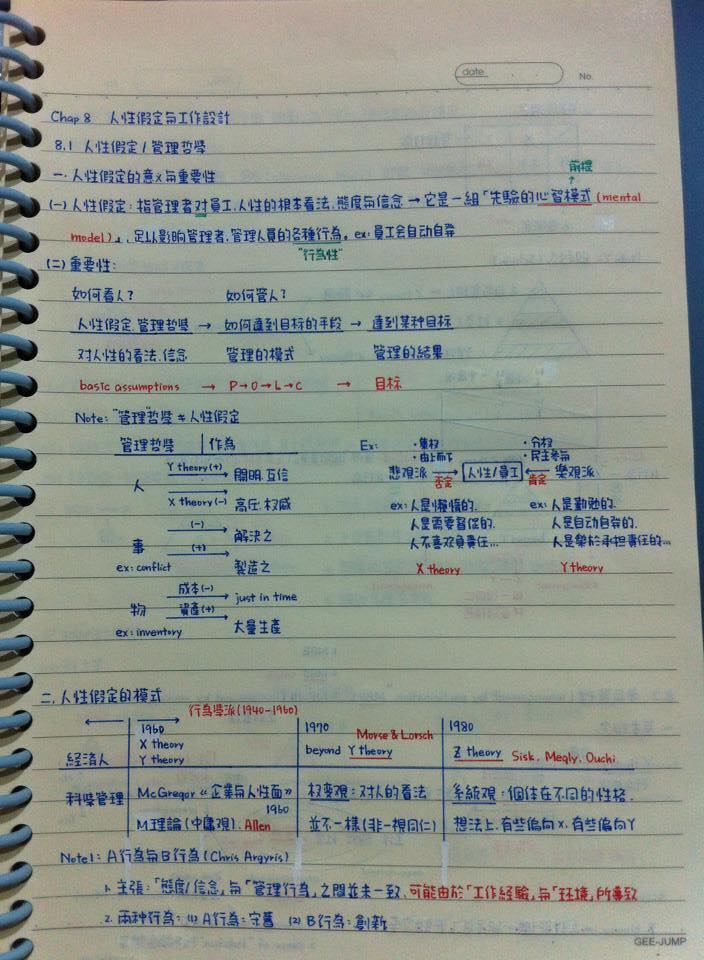 date. . .
No.
Chap 8 人性假定与工作設計
8.1 人性假定/管理哲學
一.人性假定的意义与重要性
前提
↑
(一)人性假定:指管理者对員工、人性的根本看法、態度与信念→它是一組「先驗的心智模式(mental
model)」,足以影響管理者、管理人員的各種行為。ex:員工会自动自発
"行為性"
(二)重要性:
如何看人? 如何管人?
人性假定.管理哲學 → 如何達到目标的手段 → 達到某种目标
对人性的看法、信念 管理的模式 管理的結果
basic assumptions → P→O→L→C → 目标
Note: "管理"哲學≠人性假定
管理哲學 作為 Ex: ·集权 ·分权
·由上而下 ·民主参与
人 Y theory(+) 開明.互信 悲覌派 → 否定 人性/員工 ← 肯定 樂覌派
X theory(-) 高圧.权威 ex:人是懶惰的. ex:人是勤勉的.
(-) 解決之 人是需要督促的. 人是自动自発的.
事 (+) 人不喜欢負責任... 人是樂於承担責任的...
ex: conflict 製造之 X theory Y theory
成本(-) just in time
物 資產(+)
ex: inventory 大量生產
二.人性假定的模式
← → 行為學派(1940-1960)
1960 1970 Morse & Lorsch 1980
X theory beyond Y theory Z theory Sisk, Megly, Ouchi
経済人 Y theory
科學管理 McGregor《企業与人性面》 权変覌:对人的看法 系統覌:個体在不同的性格.
1960
M理論(中庸覌).Allen 並不一樣(非一視同仁) 想法上.有些偏向X.有些偏向Y
Note1: A行為与B行為(Chris Argyris)
1. 主張:「態度/信念」与「管理行為」之間並未一致.可能由於「工作経驗」与「环境」所導致
2. 兩种行為:(1)A行為:守舊 (2)B行為:創新
GEE-JUMP